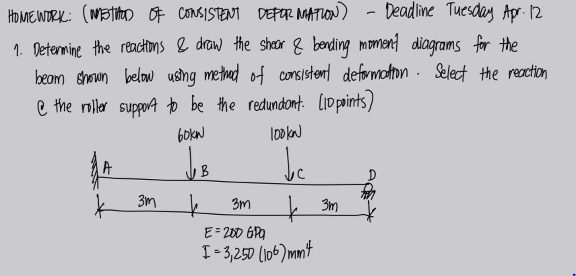 HOMEWORK: (METHOD OF CONSISTENT DEFORMATION) - Deadline Tuesday Apr. 12
1. Determine the reactions & draw the shear & bending moment diagrams for the
beam shown below using method of consistent deformation. Select the reaction
@ the roller support to be the redundant. (10 points)
60kN 100kN
A B C D
3m 3m 3m
E = 200 GPa
I = 3,250 (10⁶) mm⁴